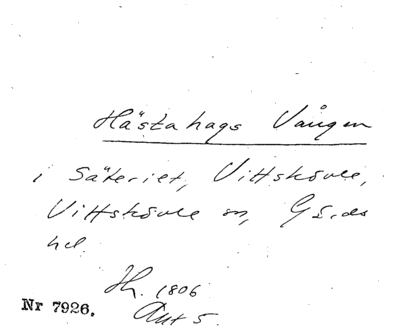 Hästahags Vången
i Säteriet, Vittskövle,
Vittskövle sn, Gärds
hd.
Hh. 1806
Nr 7926. Akt 5.